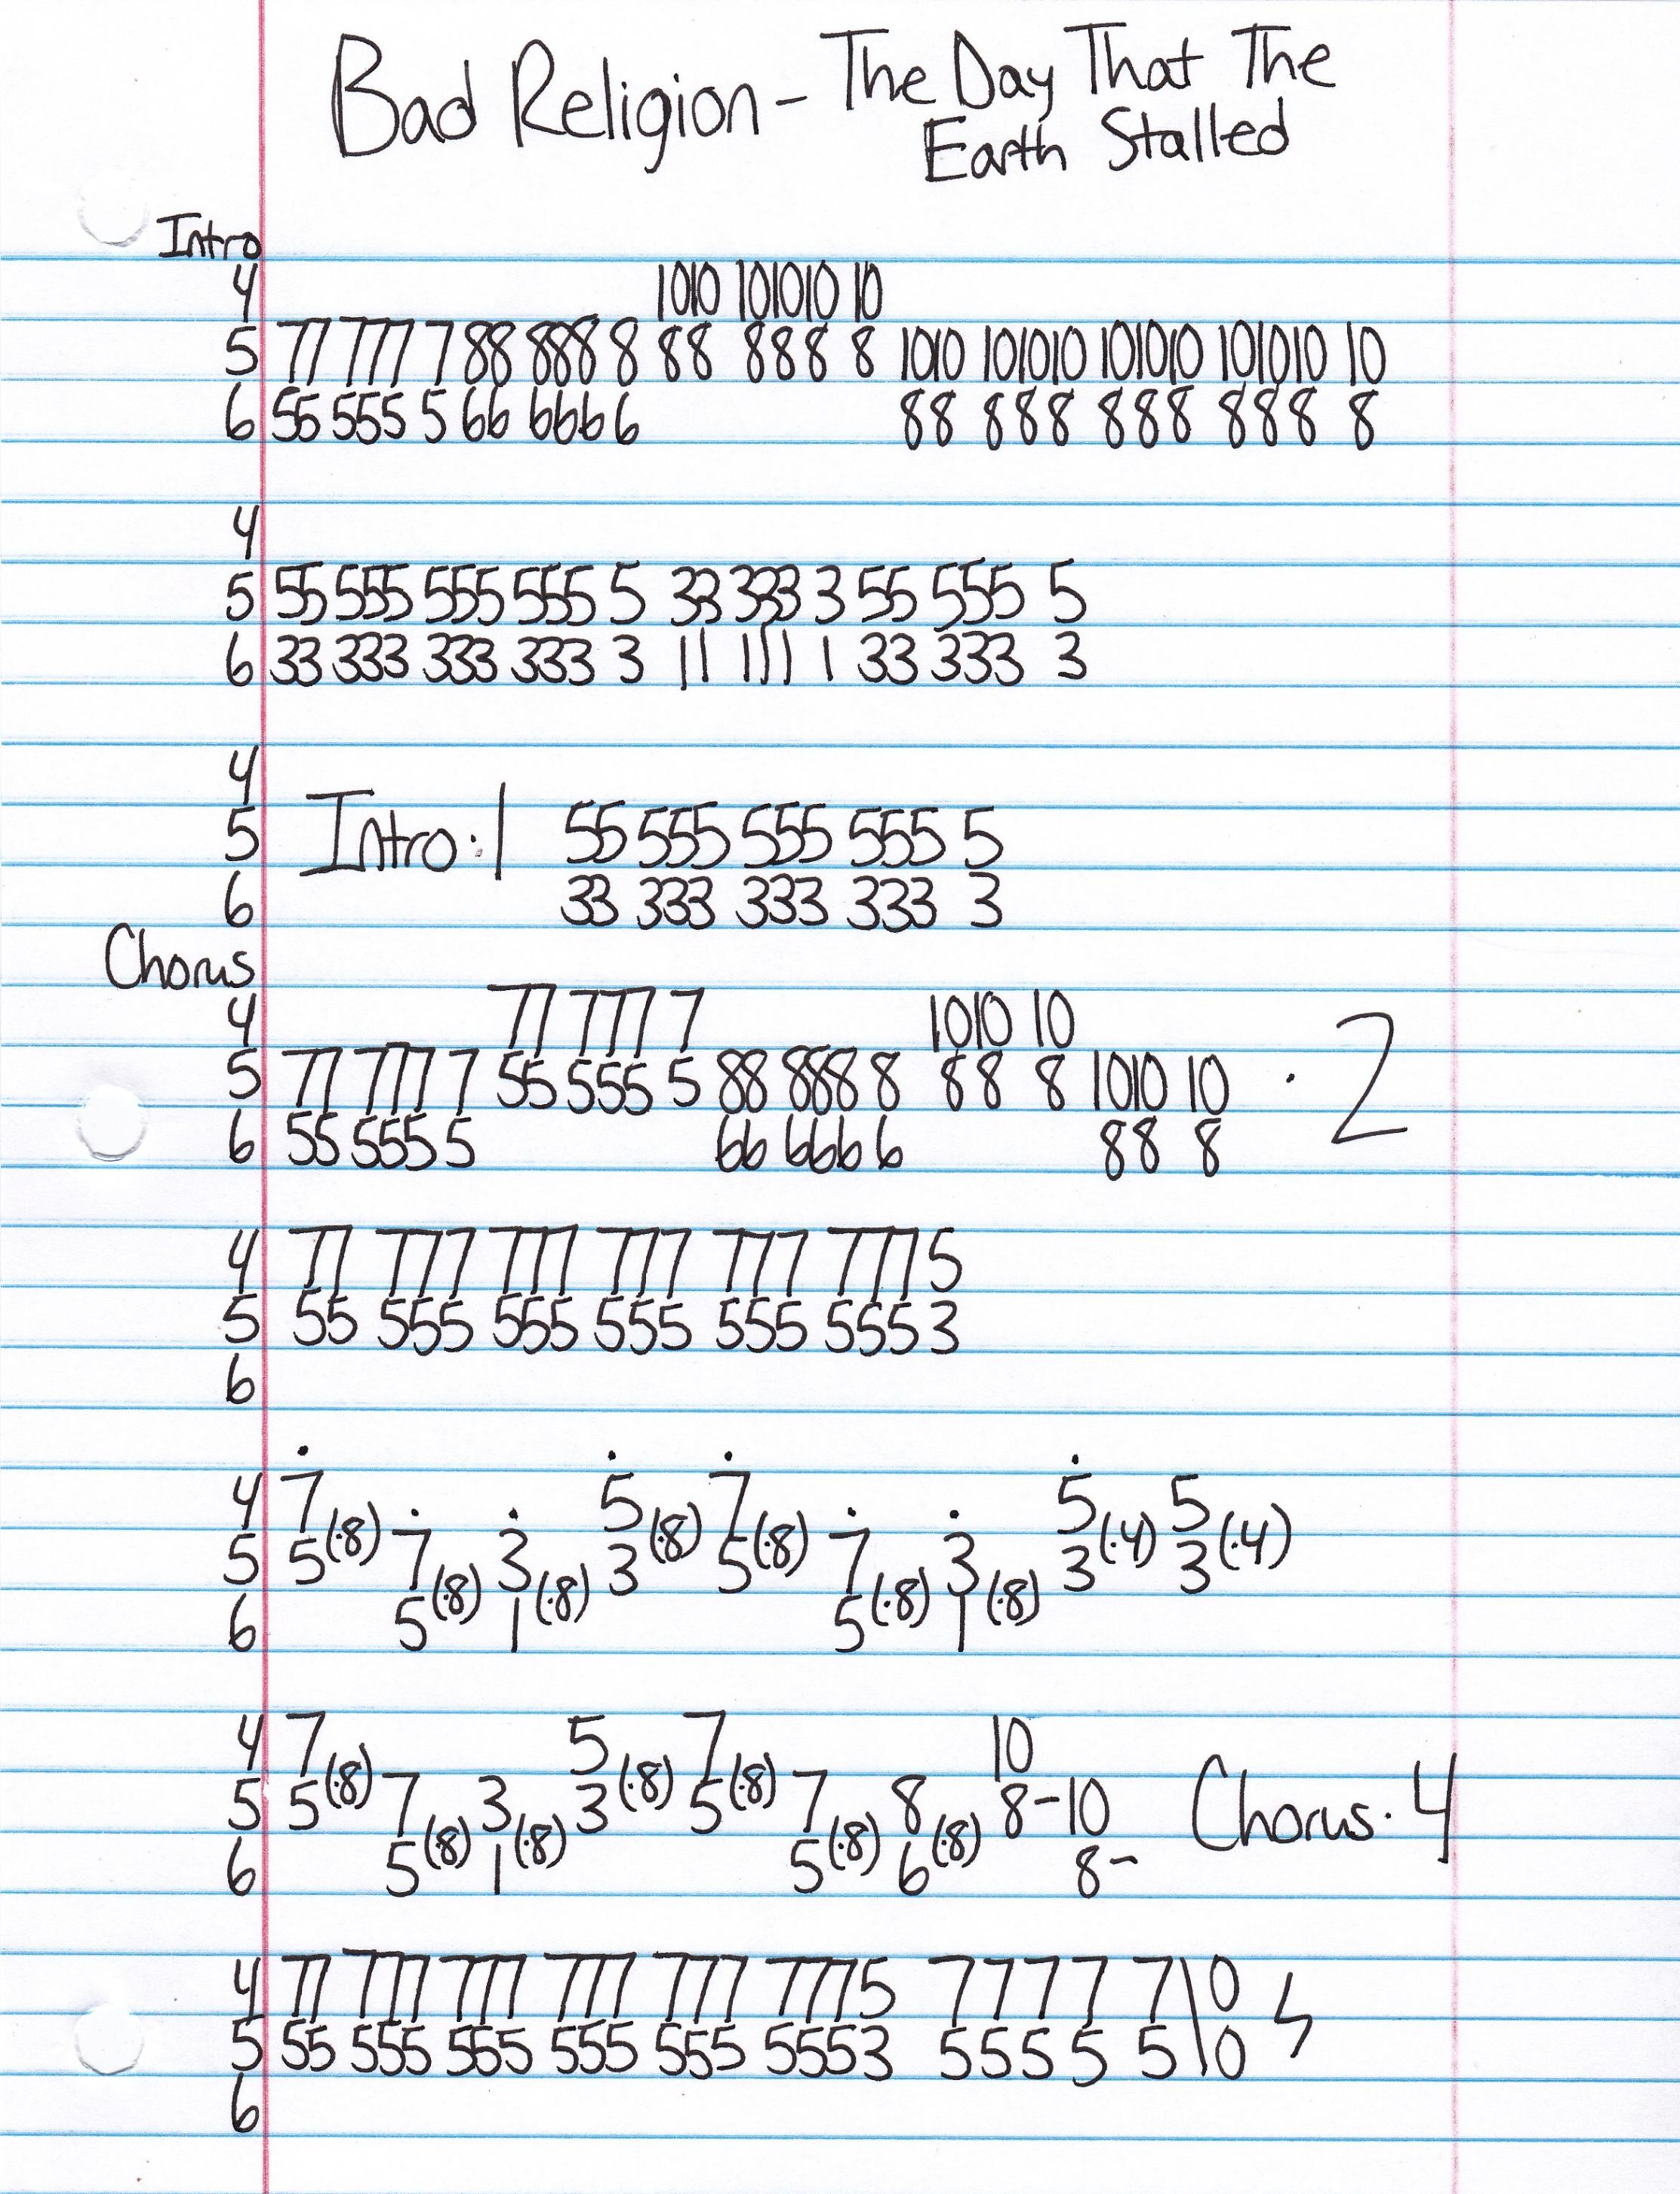 Bad Religion - The Day That The
Earth Stalled
Intro
4 1010 101010 10
5 77 777 7 88 888 8 88 888 8 1010 101010 101010 101010 10
6 55 555 5 66 666 6 88 888 888 888 8
4
5 55 555 555 555 5 33 333 3 55 555 5
6 33 333 333 333 3 11 111 1 33 333 3
4
5 Intro:| 55 555 555 555 5
6 33 333 333 333 3
Chorus
4 77 777 7 1010 10
5 77 777 7 55 555 5 88 888 8 88 8 1010 10 · 2
6 55 555 5 66 666 6 88 8
4 77 777 777 777 777 777 5
5 55 555 555 555 555 555 3
6
4 7 5 7 5 5
5 5 (·8) 7 3 3 (·8) 5 (·8) 7 3 3 (·4) 3 (·4)
6 5 (·8) 1 (·8) 5 (·8) 1 (·8)
4 7 5 7 10
5 5 (·8) 7 3 3 (·8) 5 (·8) 7 8 8-10 Chorus· 4
6 5 (·8) 1 (·8) 5 (·8) 6 (·8) 8-
4 77 777 777 777 777 777 5 7 7 7 7 7\0
5 55 555 555 555 555 555 3 5 5 5 5 5\0
6